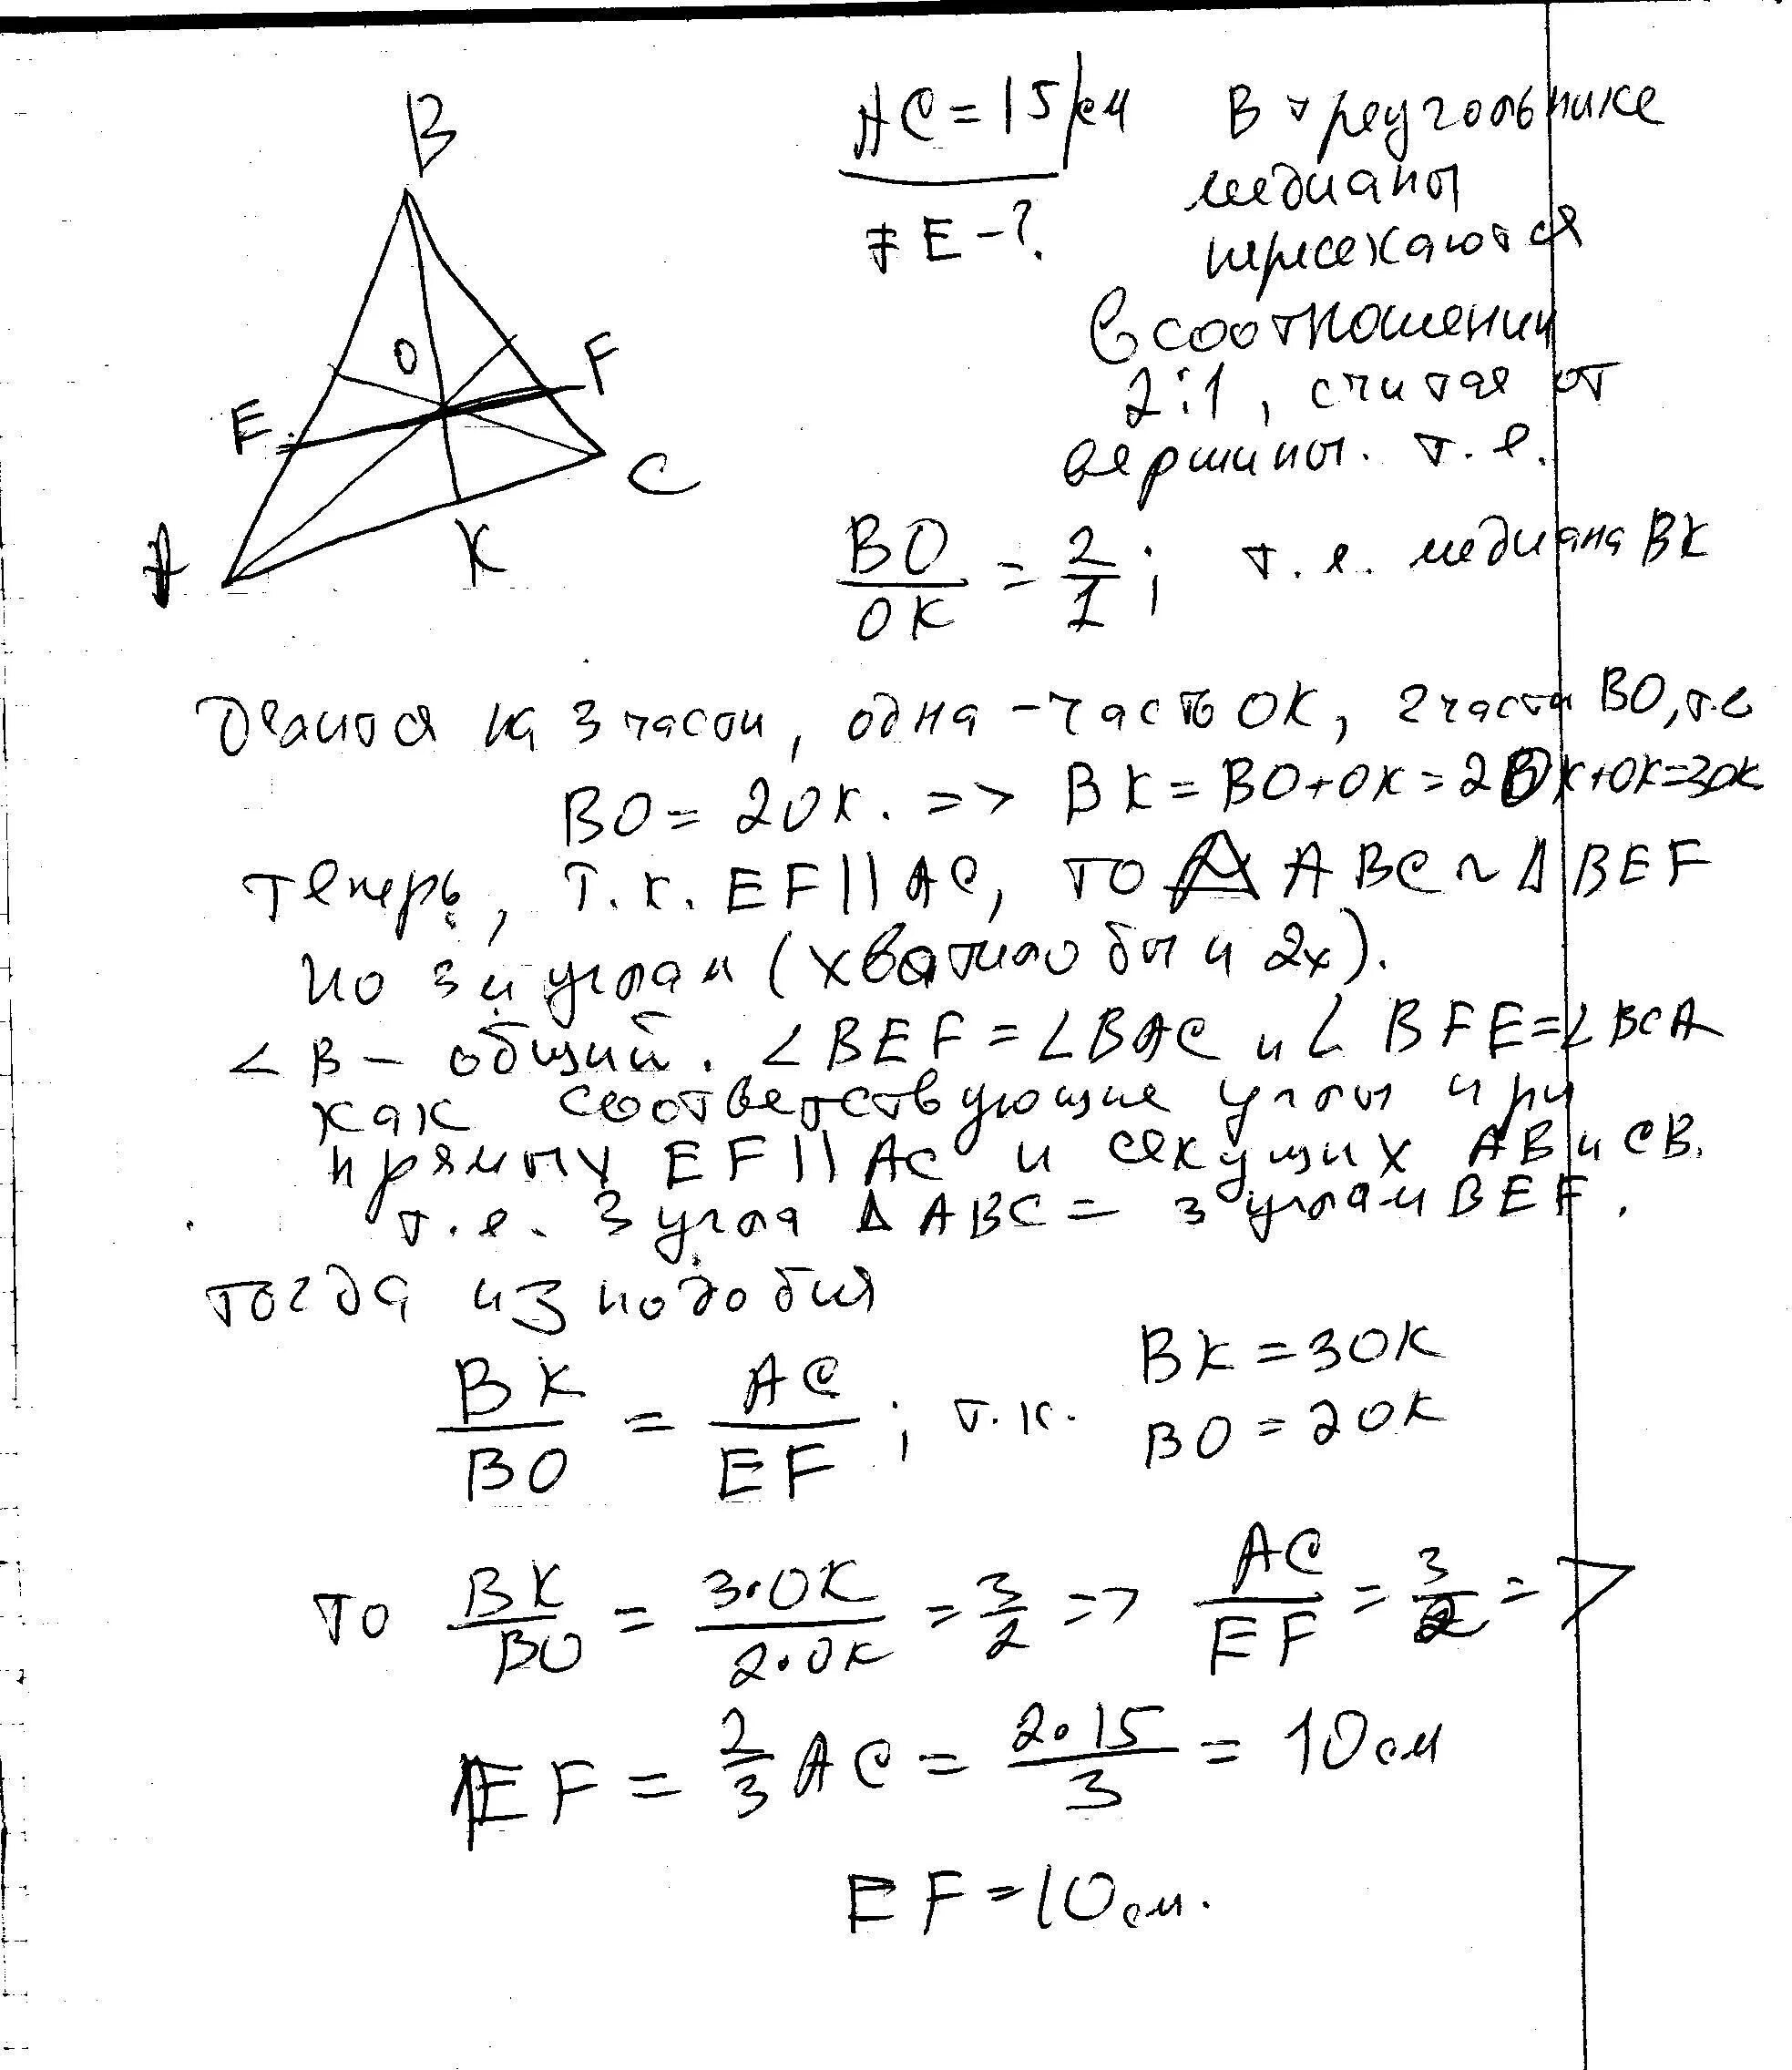 B
O
E
F
C
A
K
AC = 15 см
FE - ?
В треугольнике
медианы
пересекаются
в соотношении
2:1, считая от
вершины. т.е.
BO/OK = 2/1; т.е. медиана BK
делится на 3 части, одна - часть OK, 2 части BO, т.е
BO = 2OK. => BK = BO+OK = 2OK+OK=3OK
теперь, т.к. EF || AC, то Δ ABC ~ Δ BEF
по 3м углам (хватило бы и 2х).
∠B - общий. ∠BEF = ∠BAC и ∠BFE = ∠BCA
как соответствующие углы при
прямых EF || AC и секущих AB и CB.
т.е. 3 угла Δ ABC = 3 углам BEF.
тогда из подобия
BK/BO = AC/EF; т.к. BK = 3OK
BO = 2OK
то BK/BO = 3·OK/2·OK = 3/2 => AC/EF = 3/2 =>
EF = 2/3 AC = 2·15/3 = 10 см
EF = 10 см.